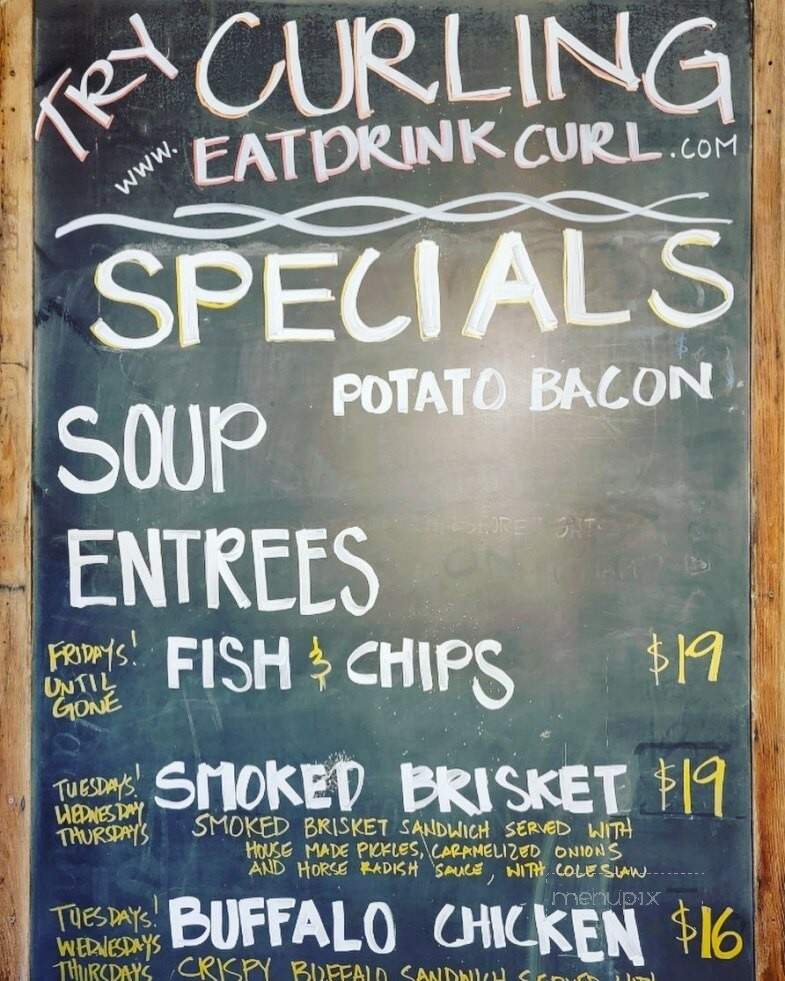 TRY CURLING
www. EATDRINKCURL.COM
SPECIALS
POTATO BACON
SOUP
ENTREES
FRIDAYS!
UNTIL
GONE
FISH & CHIPS $19
TUESDAYS!
WEDNESDAY
THURSDAYS
SMOKED BRISKET $19
SMOKED BRISKET SANDWICH SERVED WITH
HOUSE MADE PICKLES, CARAMELIZED ONIONS
AND HORSE RADISH SAUCE, WITH COLE SLAW
menupix
TUESDAYS!
WEDNESDAYS
THURSDAYS
BUFFALO CHICKEN $16
CRISPY BUFFALO SANDWICH SERVED WITH